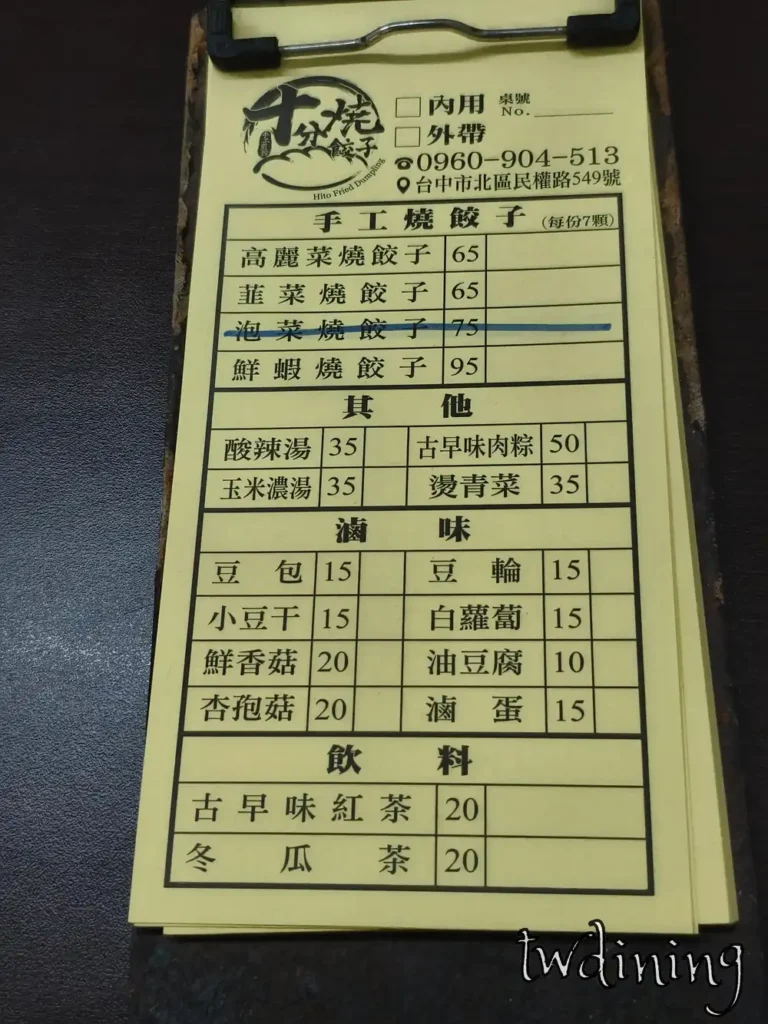 十分燒餃子
Hito Fried Dumpling
□內用 桌號 No.
□外帶
0960-904-513
台中市北區民權路549號
手工燒餃子 (每份7顆)
高麗菜燒餃子 65
韮菜燒餃子 65
泡菜燒餃子 75
鮮蝦燒餃子 95
其他
酸辣湯 35 古早味肉粽 50
玉米濃湯 35 燙青菜 35
滷味
豆包 15 豆輪 15
小豆干 15 白蘿蔔 15
鮮香菇 20 油豆腐 10
杏孢菇 20 滷蛋 15
飲料
古早味紅茶 20
冬瓜茶 20
twdining